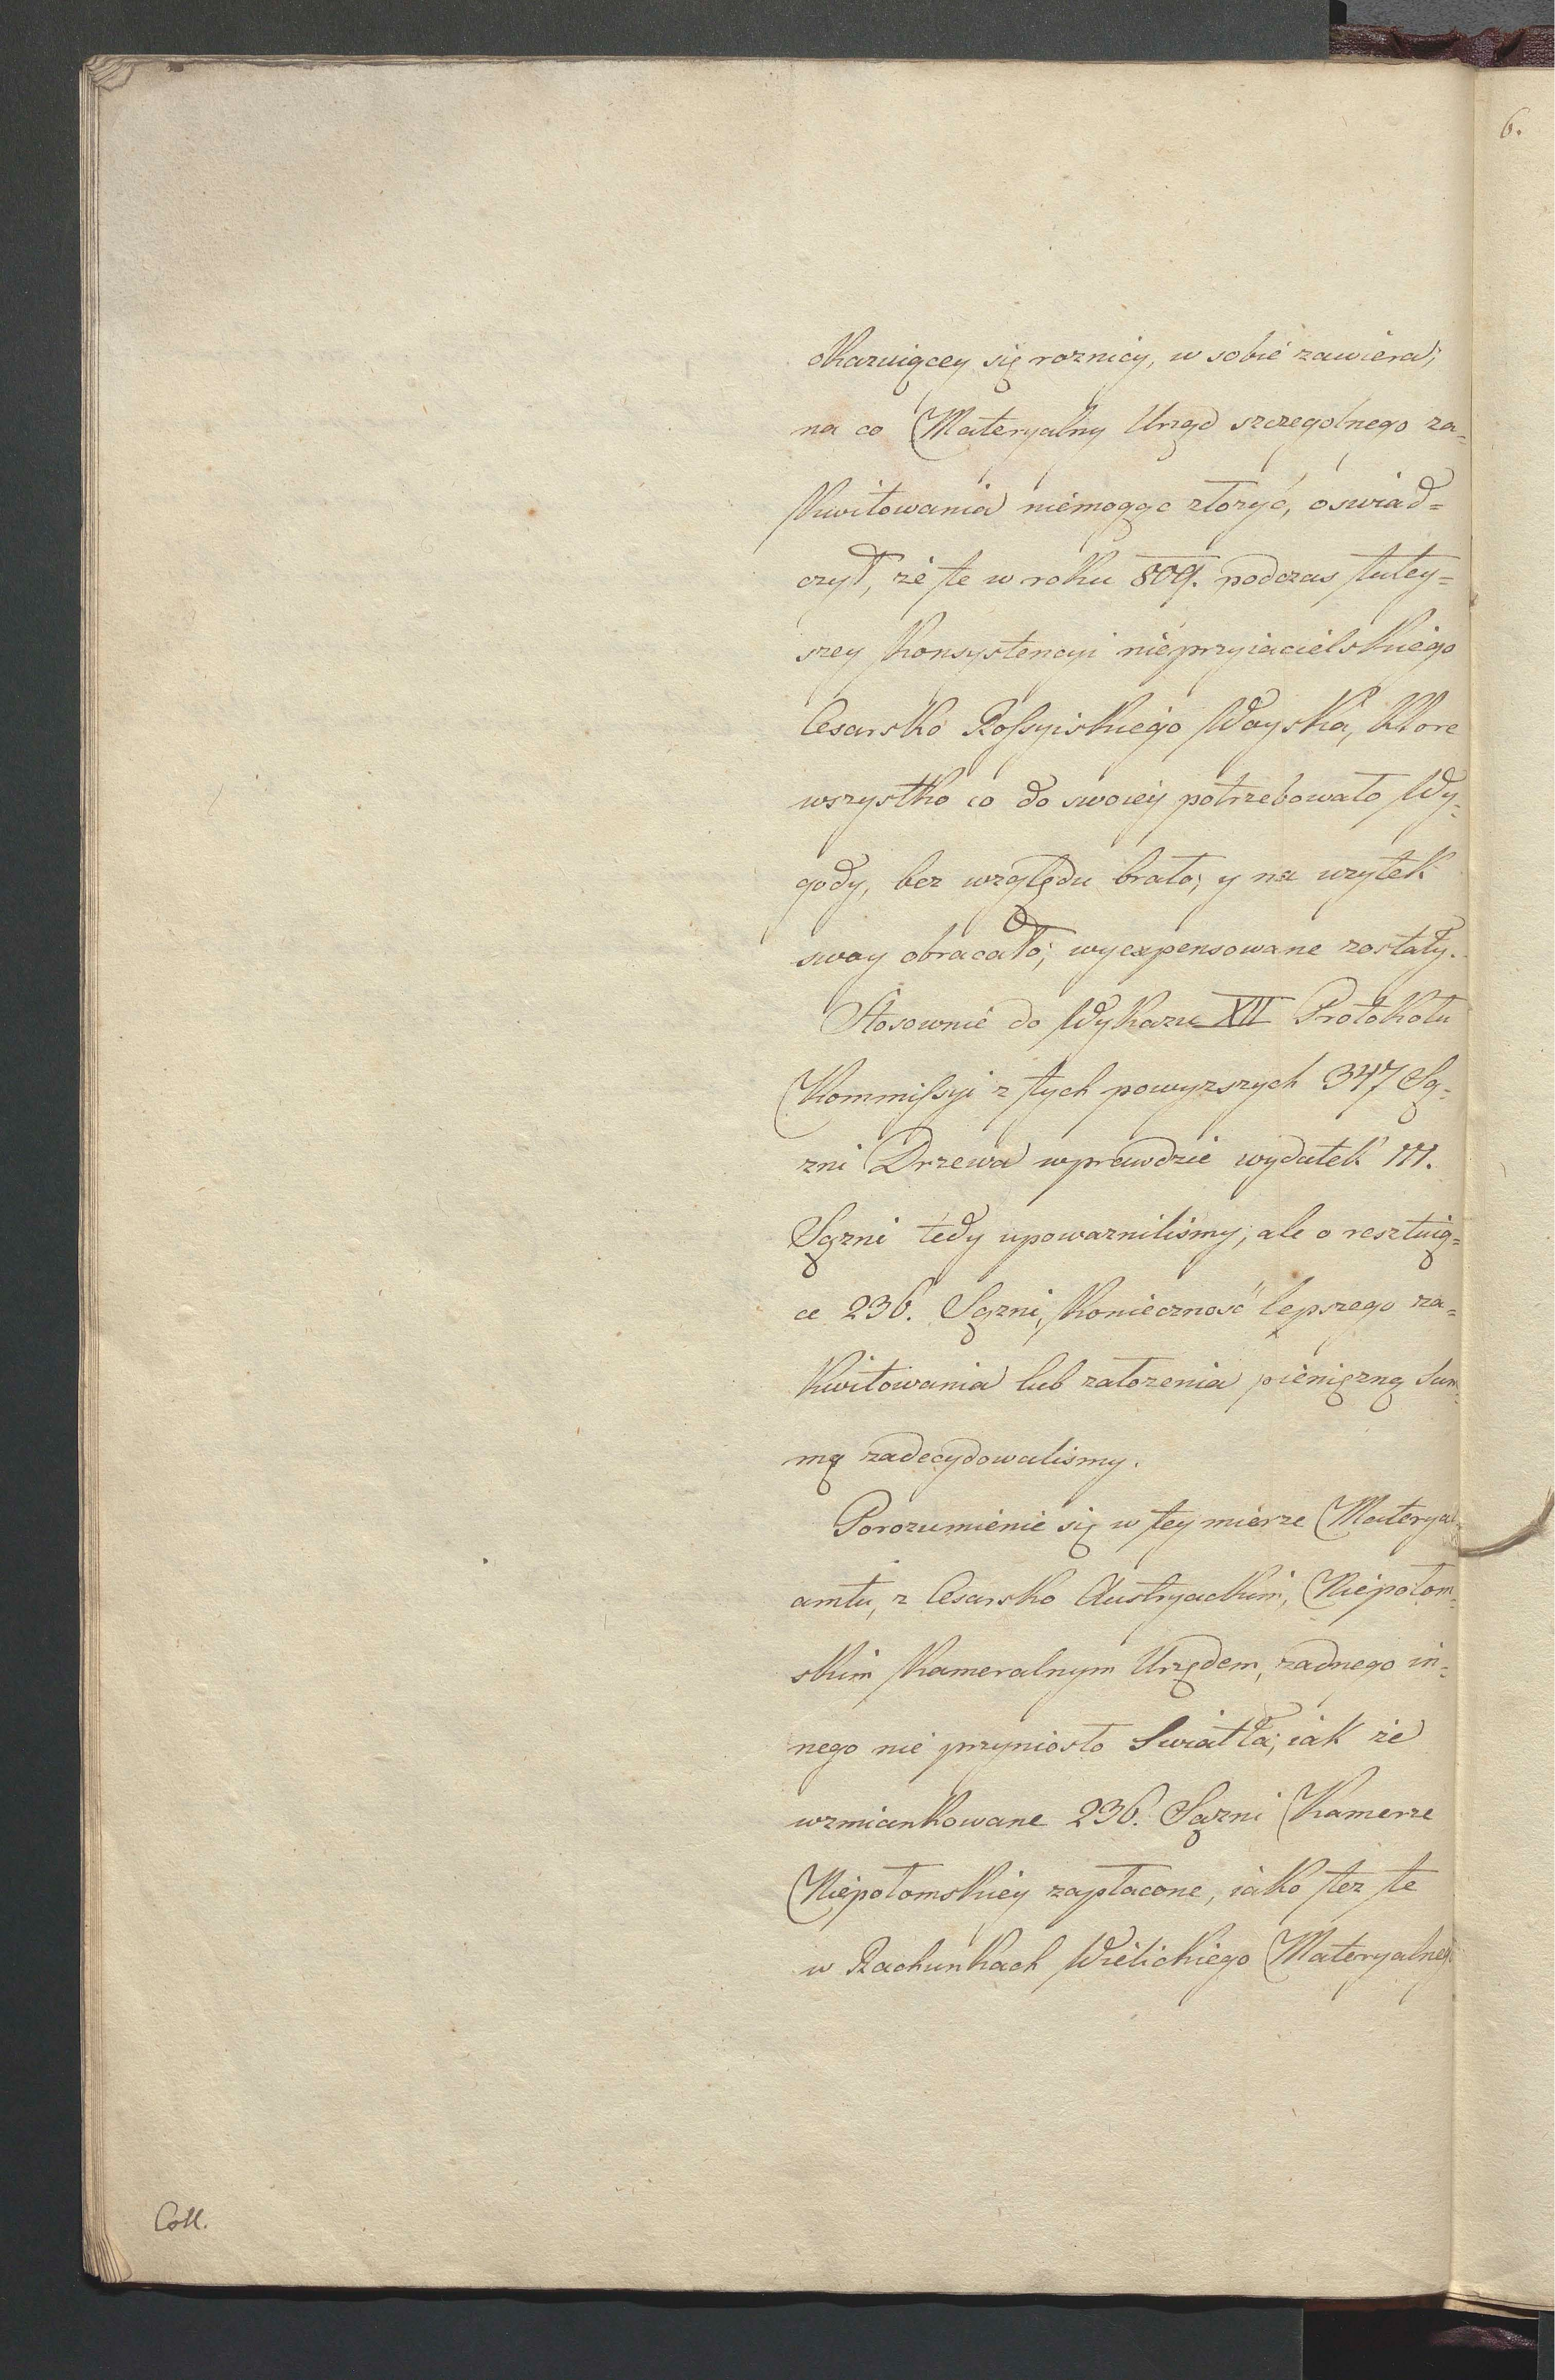 6.
okazuiącey się roznicy, w sobie zawiera;
na co Materyalny Urząd szczegolnego za=
kwitowania niemogąc złozyć, oswiad=
czył, że te w roku 809. podczas tutey=
szey Konsystencyi nieprzyiacielskiego
Cesarsko Rossyiskiego Woyska, ktore
wszystko co do swoiey potrzebowało Wy=
gody, bez względu brało; y na uzytek
swoy obracało; wyexpensowane zostały.
Stosownie do Wykazu XII Protokołu
Kommissyi z tych powyzszych 347 Są=
zni Drzewa wprawdzie wydatek 111.
Sązni tedy upowaznilismy; ale o resztuią=
ce 236. Sązni, Konieczność lepszego za=
kwitowania lub załozenia pienięzną Sum=
mą zadecydowalismy.
Porozumienie się w tey mierze Materyal=
amtu, z Cesarsko Austryackim, Niepołom=
skim Kameralnym Urzędem, zadnego in=
nego nie przyniosło Swiatła; iak że
wzmiankowane 236. Sązni Kamerze
Niepołomskiey zapłacone, iako tez te
w Rachunkach Wielickiego Materyalneg
Coll.